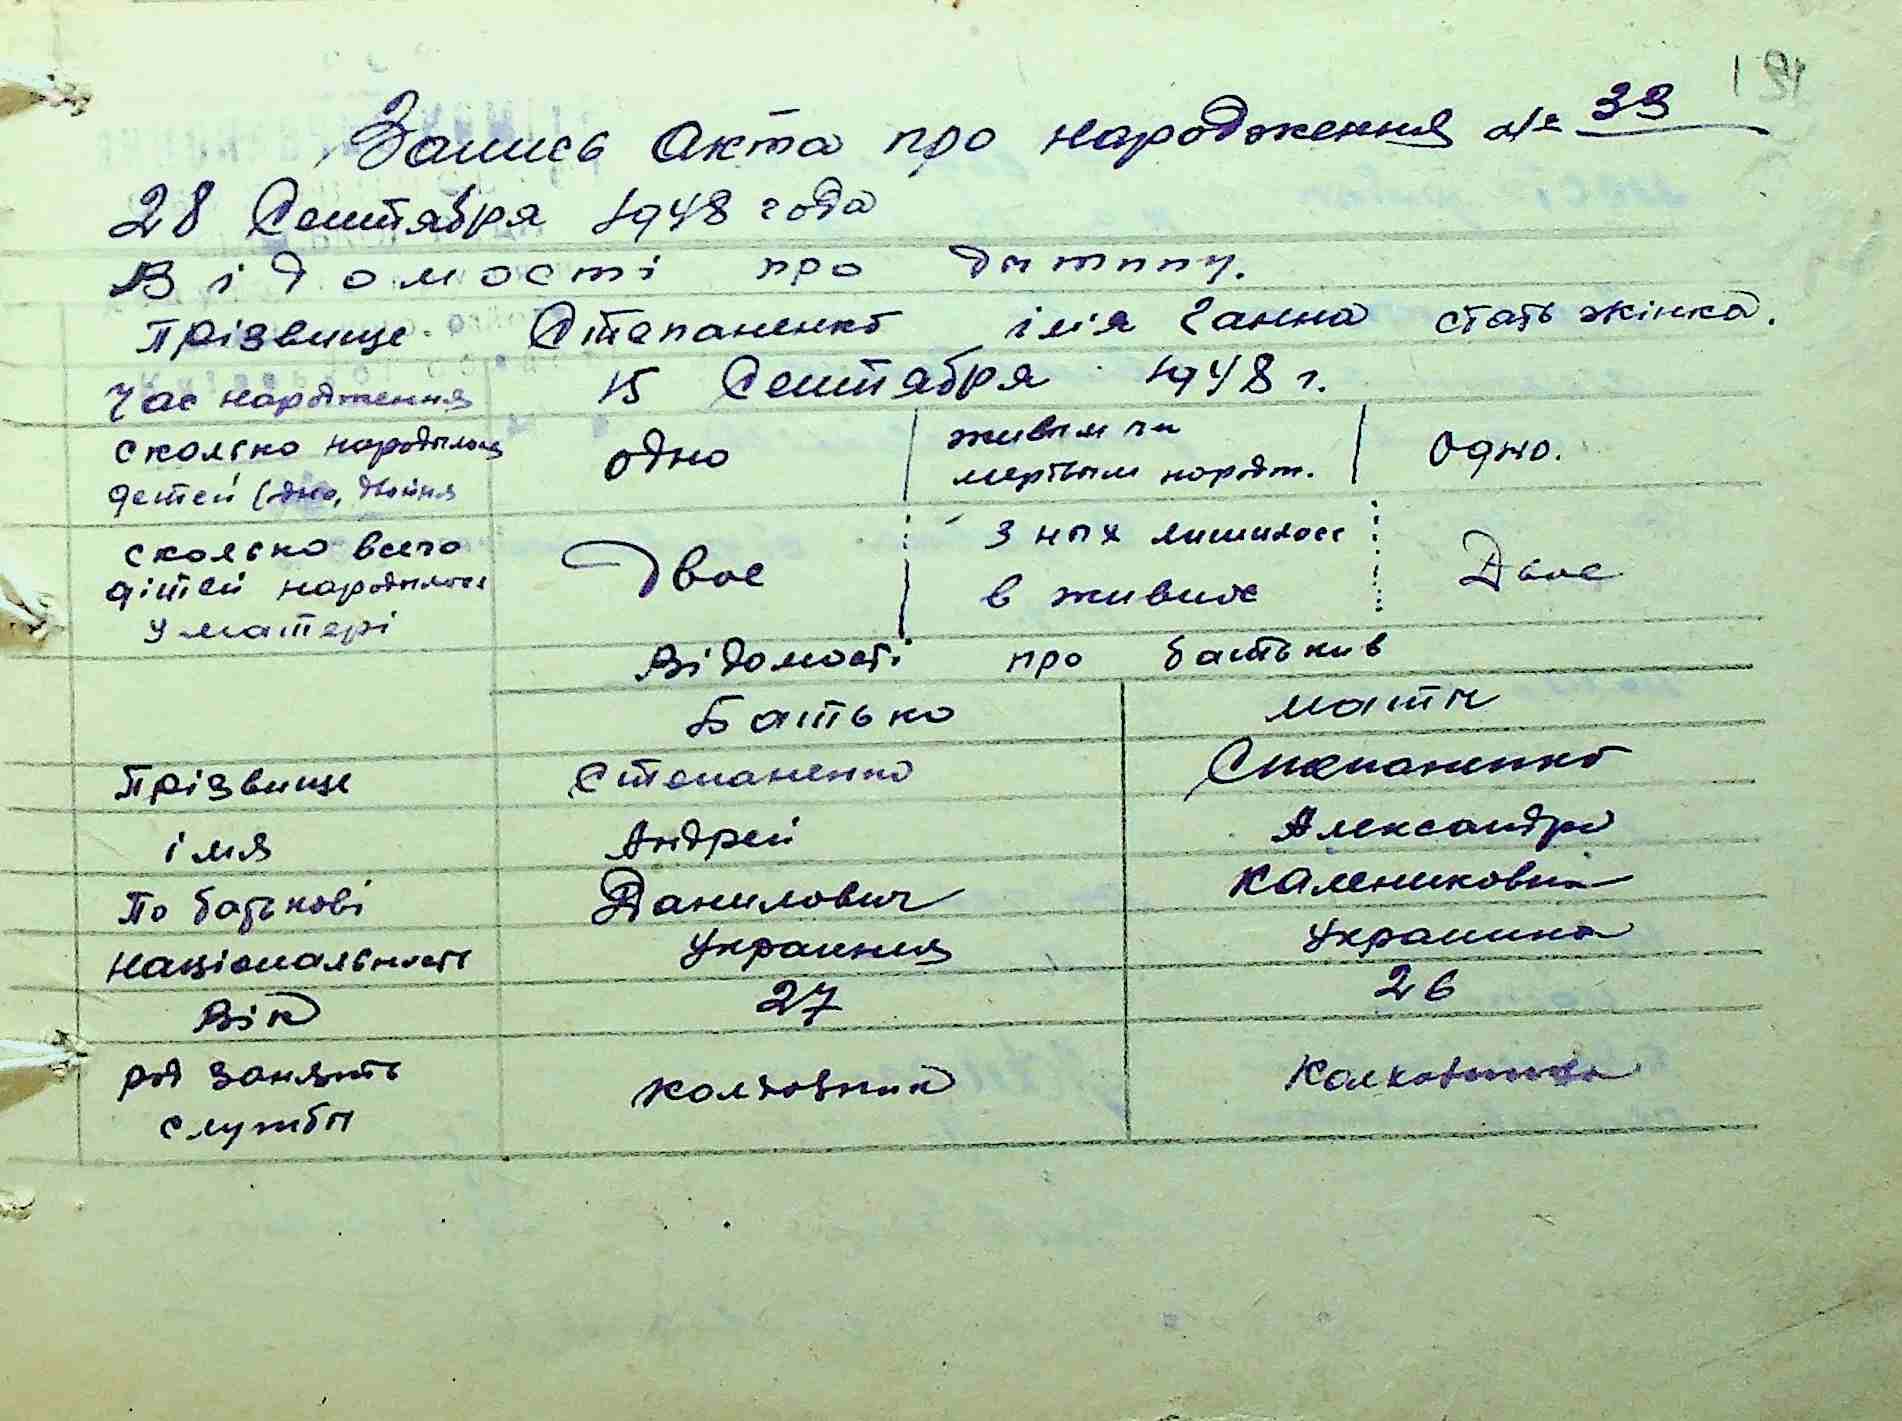 Запись Акта про народження № 33
28 Сентября 1948 года
Відомості про дытыну.
Прізвище Степаненко імія Ганна стать жінка.
Час народження 15 Сентября 1948 г.
сколько народылось детей (одно, двойня одно живым чи мертвым народж. Одно.
сколько всего дітей народылось у матері Двое з ных лишилось в живых Двое
Відомості про батькив
Батько мати
Прізвище Степаненко Степаненко
імя Андрей Александра
По батькові Данилович Калениковна
національность Украинец Украинка
Вік 27 26
род занять службы колховник Колховница